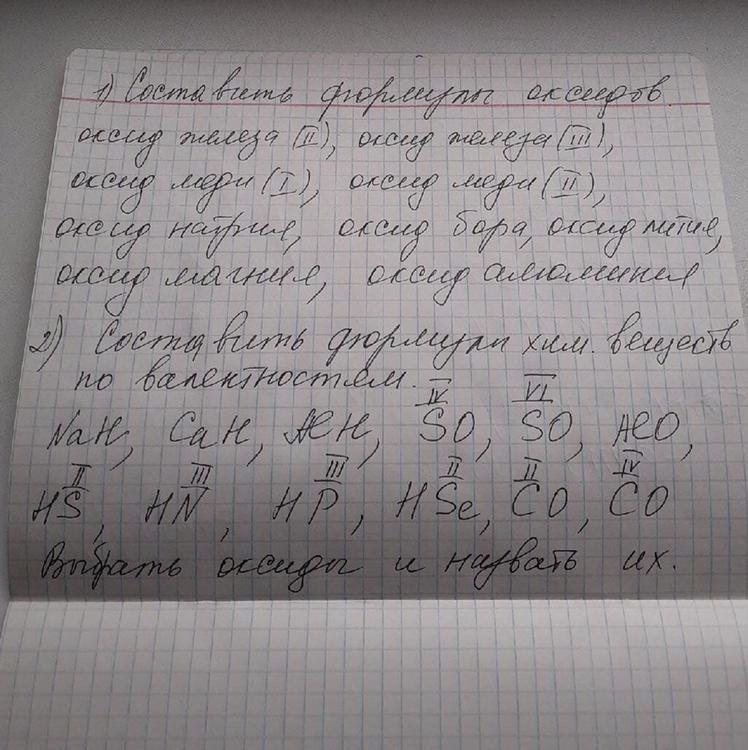 1) Составить формулы оксидов.
оксид железа (II), оксид железа (III),
оксид меди (I), оксид меди (II),
оксид натрия, оксид бора, оксид лития,
оксид магния, оксид алюминия
2) Составить формулы хим. веществ
по валентностям.
IV VI
NaH, CaH, AlH, SO, SO, AlO,
II III III II II IV
HS, HN, HP, HSe, CO, CO
Выбрать оксиды и назвать их.